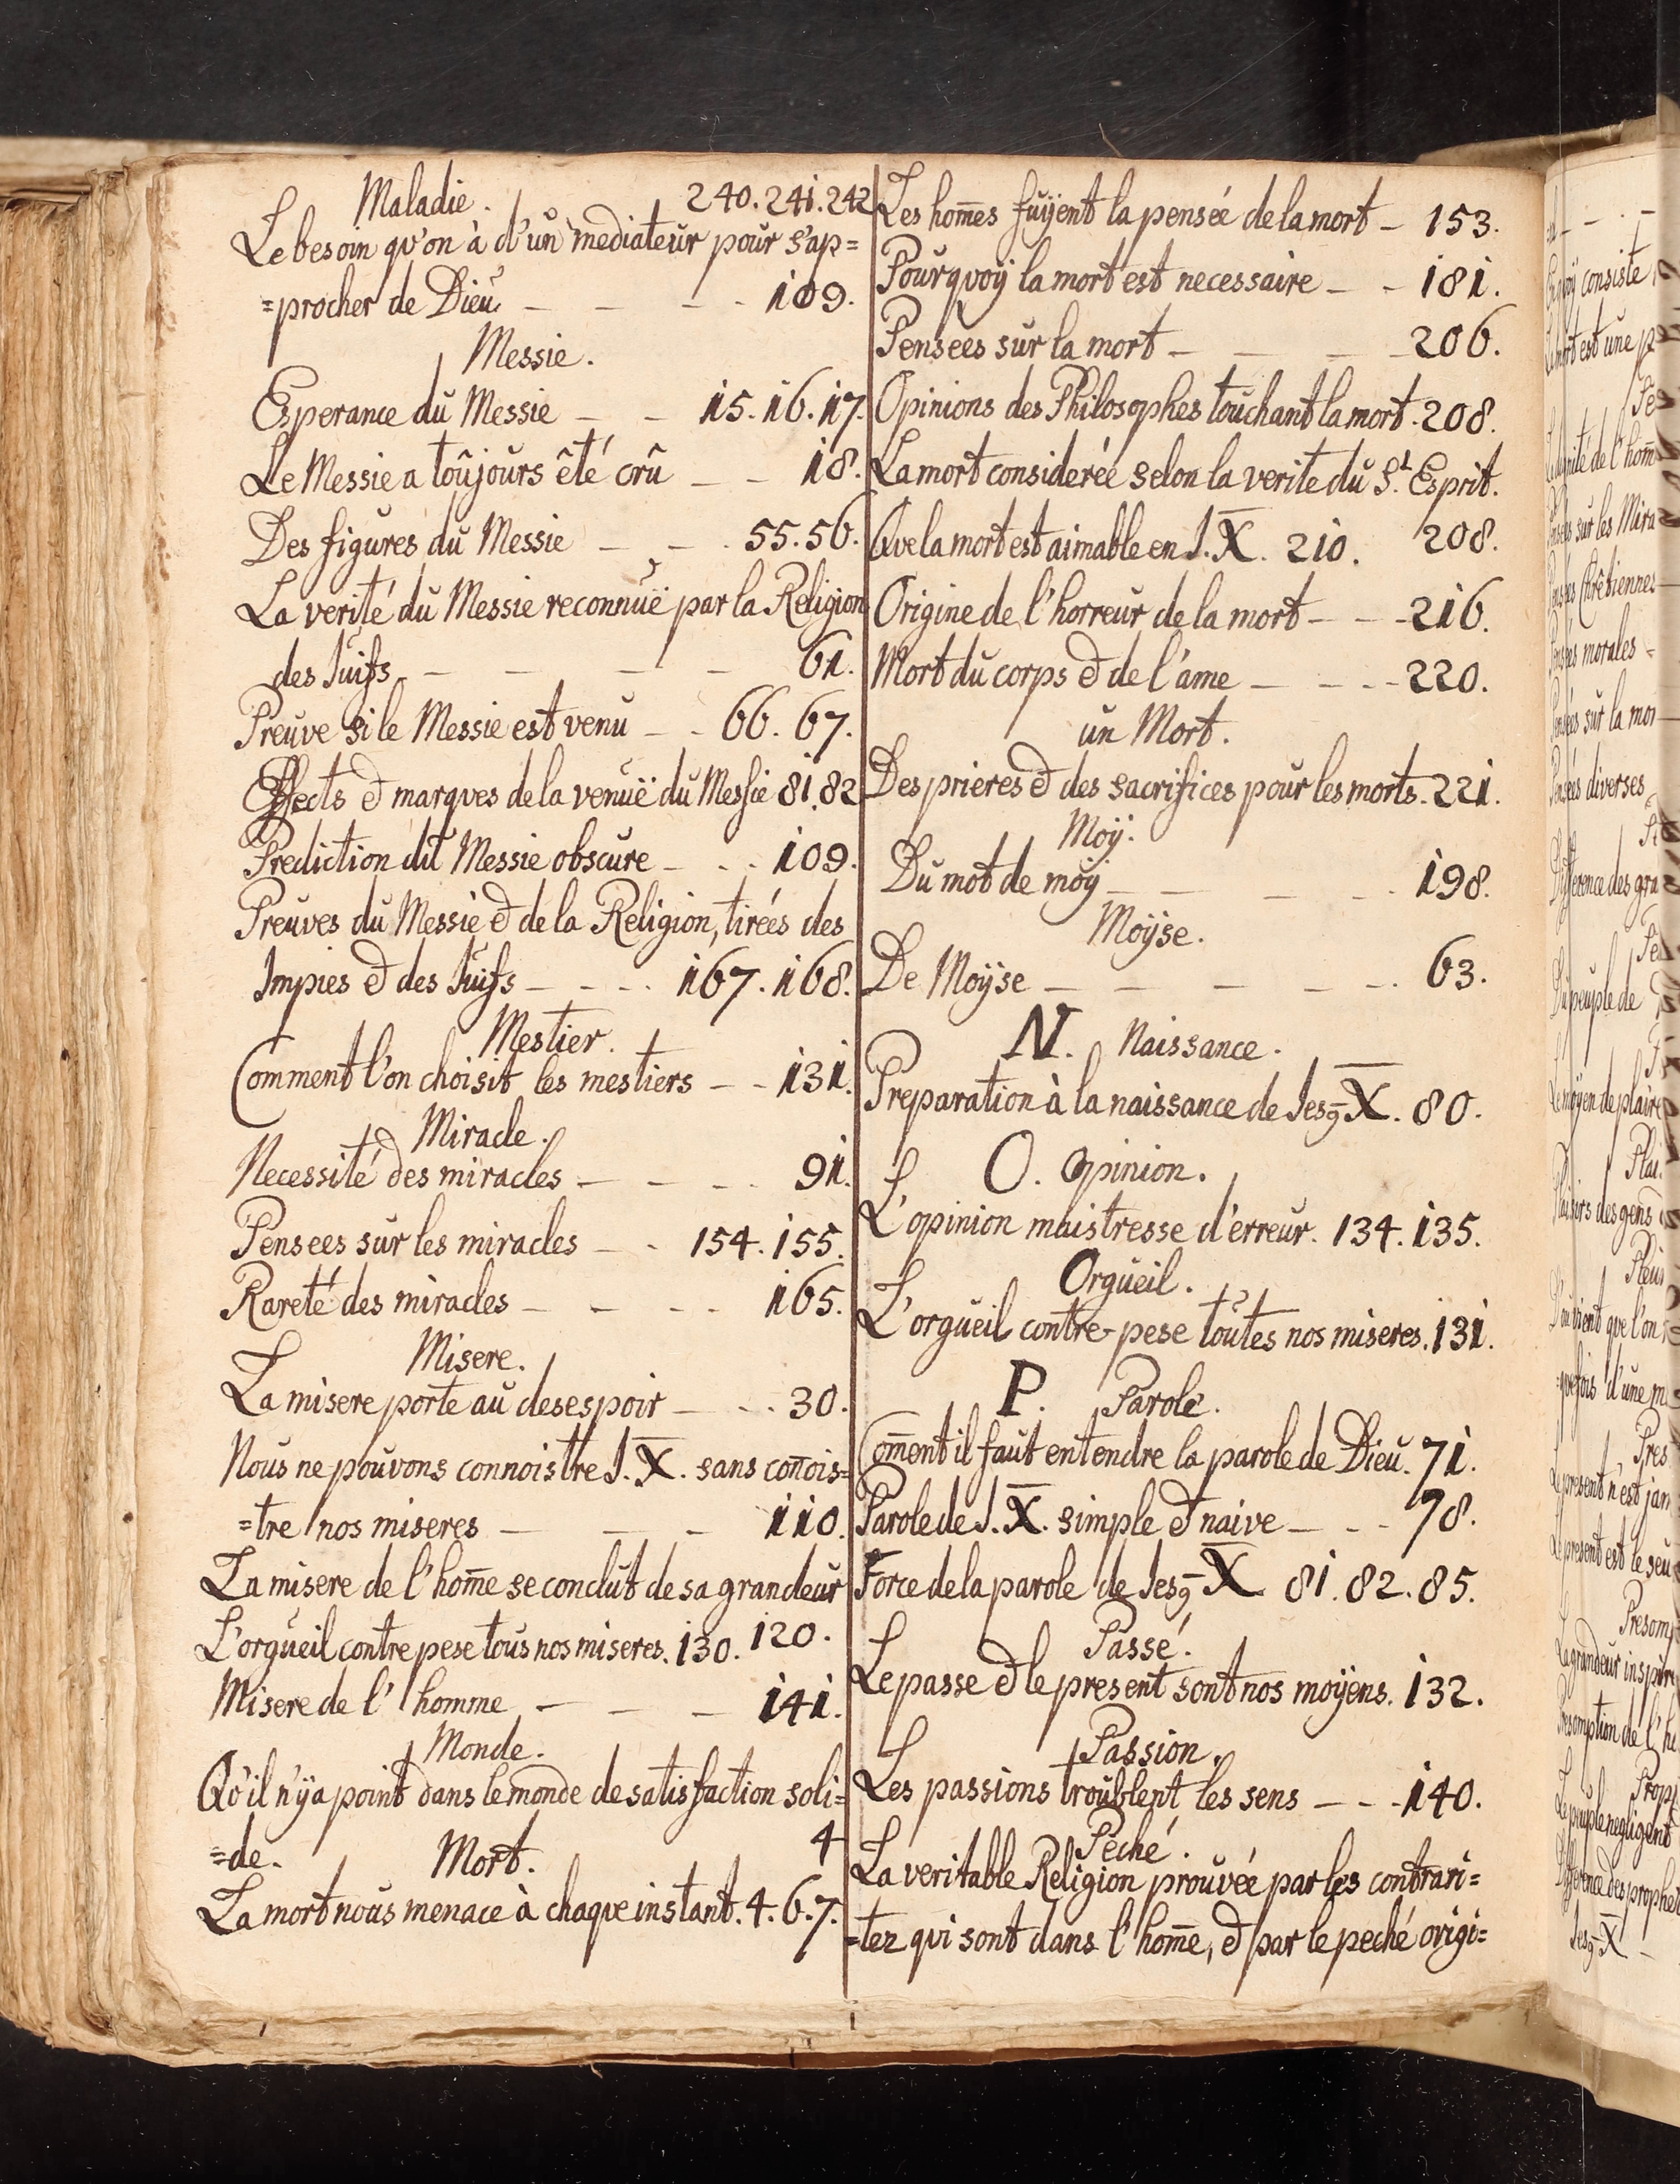 Maladie. 240.241.242
Le besoin qu'on à d'un mediateur pour s'ap=
=procher de Dieu — — — 109.
Messie.
Esperance du Messie — — 15.16.17.
Le Messie a toûjours êté crû — — 18.
Des figures du Messie — — . 55.56.
La verité du Messie reconnuë par la Religion
des Juifs — — — — 61.
Preuve si le Messie est venu — . 66. 67.
Effects & marques de la venuë du Messie 81.82
Prediction du Messie obscure — . . 109.
Preuves du Messie & de la Religion, tirées des
Impies & des Juifs — — . . 167.168.
Mestier.
Comment l'on choisit les mestiers — — 131.
Miracle.
Necessité des miracles — — — . . 91.
Pensees sur les miracles — . 154.155.
Rareté des miracles — — — . 165.
Misere.
La misere porte au desespoir — . . 30.
Nous ne pouvons connoistre J.X̅. sans con̅ois=
=tre nos miseres — — — 110.
La misere de l'hom̅e se conclut de sa grandeur
120.
L'orgueil contrepese tous nos miseres. 130.
Misere de l'homme — — — 141.
Monde.
Qu'il n'ÿ a point dans le monde de satisfaction soli=
=de. 4
Mort.
La mort nous menace à chaque instant. 4.6.7.
Les hom̅es fuÿent la pensée de la mort — 153.
Pourquoÿ la mort est necessaire — — 181.
Pensees sur la mort — — — 206.
Opinions des Philosophes touchant la mort. 208.
La mort considerée selon la verite du St. Esprit.
208.
Que la mort est aimable en J.X̅. 210.
Origine de l'horreur de la mort — — — 216.
Mort du corps & de l'áme — — . — 220.
un Mort.
Des prieres & des sacrifices pour les morts. 221.
Moÿ.
Du mot de moÿ — — — . . 198.
Moÿse.
De Moÿse — — — — . . 63.
N. Naissance.
Preparation à la naissance de Jesꝯ-X̅. 80.
O. Opinion.
L'opinion maistresse d'erreur. 134.135.
Orgüeil.
L'orgüeil contre-pese toutes nos miseres. 131.
P. Parole.
Com̅ent il faut entendre la parole de Dieu. 71.
Parole de J.X̅. simple & naive — . . 78.
Force de la parole de Jesꝯ-X̅ 81.82.85.
Passé.
Le passe & le present sont nos moÿens. 132.
Passion.
Les passions troublent les sens — — — 140.
Peché.
La veritable Religion prouvée par les contrari=
=tez qui sont dans l'hom̅e, & par le peché origi=
consiste
est une
de l'hom̅
sur les Mira
Chrêtiennes
morales
sur la mor
diverses
peuple de
moyen de plaire
Plai
des gens
que l'on
d'une m
Pres
present n'est jam
present est le seu
Presom
grandeur inspire
de l'h
Prop
peuple negligent
des prophet
Jesꝯ-X̅ —